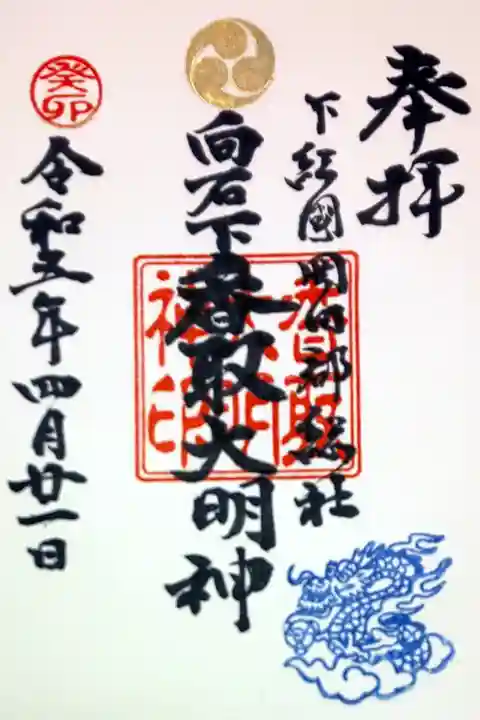 奉拝
下総國岡田郡総社
向石下香取大明神
香取大明神印
令和五年四月廿一日
癸卯